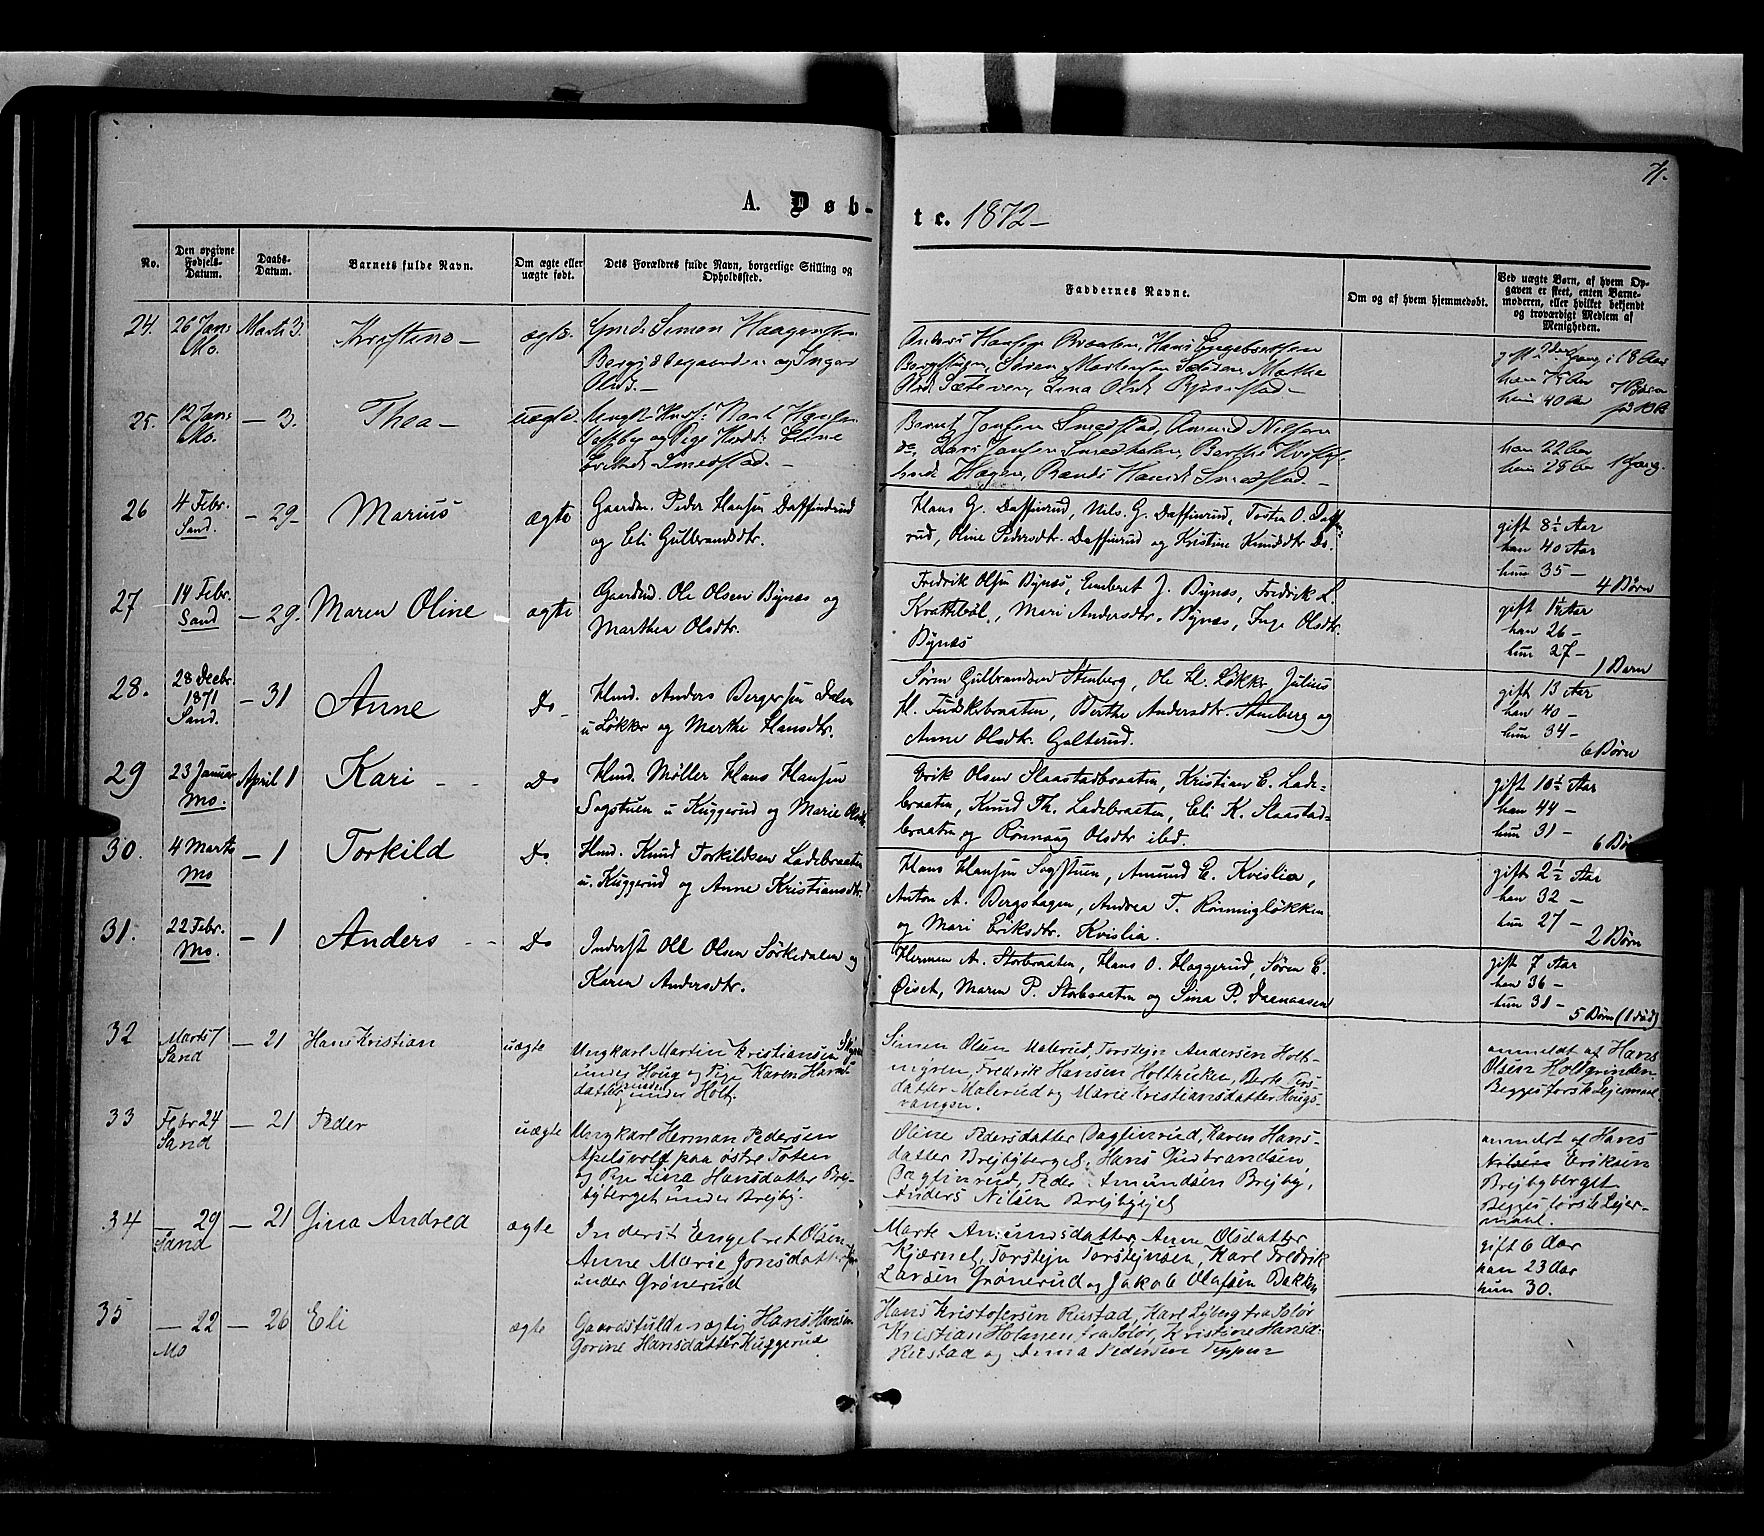 71.
A. Døb-
te. 1872 -
No.
Den opgivne Fødsels-Datum.
Daabs-Datum.
Barnets fulde Navn.
Om ægte eller uægte født.
Dets Forældres fulde Navn, borgerlige Stilling og Opholdssted.
Faddernes Navne.
Om og af hvem hjemmedøbt.
Ved uægte Børn, af hvem Op-
gaven er skeet, enten Barne-
moderen, eller hvilket bekjendt
og troværdigt Medlem af
Menigheden.
24. 26 Jan: Mo. Marts 3. ægte.
Simen Haagensen
og Ingeb
Olsd. -
Anders Hansen Braaten, Hans Engebretsen
Søren Mortensen
Sæteren, Lina Olsd.
hun 40 Aar
7 Børn
25. 12 Jan: Mo. - 3. Thea - uægte.
Hansen
og Pige Eline
Smedstad. -
Bernt Jonsen Smedstad, Amund Nilsen
do, Lars Jansen Berthe
Hagen, Randi Hansd. Smedstad -
han 22 Aar
hun 25 Aar 1 Gang.
26 4 Febr. Sand. - 29 - Marius ægte
Gaardm. Peder Hansen Daffinrud
og Eli Gulbrandsdtr.
Hans G. Daffinrud, Nils G. Daffinrud, Tosten O. Daffin-
rud, Oline Pedersdtr. Daffinrud og Kristine Knudsdtr Do.
gift 8½ Aar
han 40 Aar
hun 35 -
4 Børn
27. 14 Febr. Sand - 29. Maren Oline ægte
Gaardmd. Ole Olsen Bynæs og
Marthea Olsdtr.
Fredrik Olsen Bynæs, Embret J. Bynæs, Fredrik L.
Krattebøl, Mari Andersdtr. Bynæs, Inge Olsdtr.
Bynæs
gift 1½ Aar
han 26 -
hun 27 -
1 Barn
28. 28 Decbr. 1871 Sand. - 31 Anne Do -
Hmd. Anders Bergersen Dalen
u Løkker og Marthe Hansdtr.
Søren Gulbrandsen Stenberg, Ole H. Løkke Julius
H. Fuskebraaten, Berthe Andersdtr. Stenberg og
Anne Olsdtr. Galterud.
gift 13 Aar
han 40 -
hun 34 -
6 Børn
29 23 Januar Mo. April 1 Kari - - Do
Hmd. Møller Hans Hansen
Sagstuen u Kuggerud og Marie Olsdtr.
Erik Olsen Slaastadbraaten, Kristian E. Lade-
braaten, Knud Th. Ladebraaten, Eli K. Slaastad-
braaten og Rønnaug Olsdtr ibd.
gift 10½ Aar
han 44 -
hun 31 -
6 Børn
30. 4 Marts Mo - 1 Torkild Do
Hmd. Knud Torkildsen Ladebraaten
u. Kuggerud og Anne Kristiansdtr.
Hans Hansen Sagstuen, Amund E. Kvislia,
Anton A. Bergshagen, Andrea T. Rønningløkken
og Mari Eriksdtr. Kvislia.
gift 2½ Aar
han 32 -
hun 27 -
2 Børn
31. 22 Febr. Mo. - 1 Anders - - Do
Inderst Ole Olsen Sørkedalen og
Karen Andersdtr.
Herman A. Storbraaten, Hans O. Haggerud, Søren E.
Øiset, Maren P. Storbraaten og Sina P. Darnaasen
gift 7 Aar
han 36 -
hun 31 -
5 Børn (1 død)
32 Marts 7 Sand - 21 Hans Kristian uægte
Ungkarl Martin Kristiansen
under Houg og Pige Karen Hans-
datter under Holt.
Simen Olsen Malerud, Torstejn Andersen Holt-
engen, Fredrik Hansen Holthucken, Berte Tors-
datter Malerud og Marie Kristiansdatter Hougs-
vangen.
anmeldt af Hans
Olsen Holtgrinden
Begges første Leiermaal
33 Febr 24 Sand - 21 Peder uægte
Ungkarl Herman Pedersen
Apelsvold paa østre Toten
og Pige Lina Hansdatter Brej-
byberget under Brejby.
Oline Pedersdatter Dagfinrud, Karen Hans-
datter Brejbyberget, Hans Gudbrandsen
Dagfinrud, Peder Amundsen Brejby,
Anders Nilsen Brejbyejet
anmeldt af Hans
Nilsen Eriksen
Brejbyberget
Begges første Leier-
maal.
34 - 29 Sand - 21 Gina Andrea ægte
Inderst Engebret Olsen
Anne Marie Jonsdatter
under Grønerud
Marte Amundsdatter, Anne Olsdatter
Kjærnet, Torstejn Torstejnsen, Karl Fredrik
Larsen Grønerud og Jakob Olafsen Bakken
gift 6 Aar
han 23 Aar
hun 30.
35 - 22 Mo - 26 Eli ægte
Gaardsfuldmægtig Hans Hansen
Gorine Hansdatter Kuggerud
Hans Kristofersen Rustad, Karl Lyberg fra Solør
Kristian Holmen fra Solør, Kristine Hansd.
Rustad og Anna Pedersen Teppen